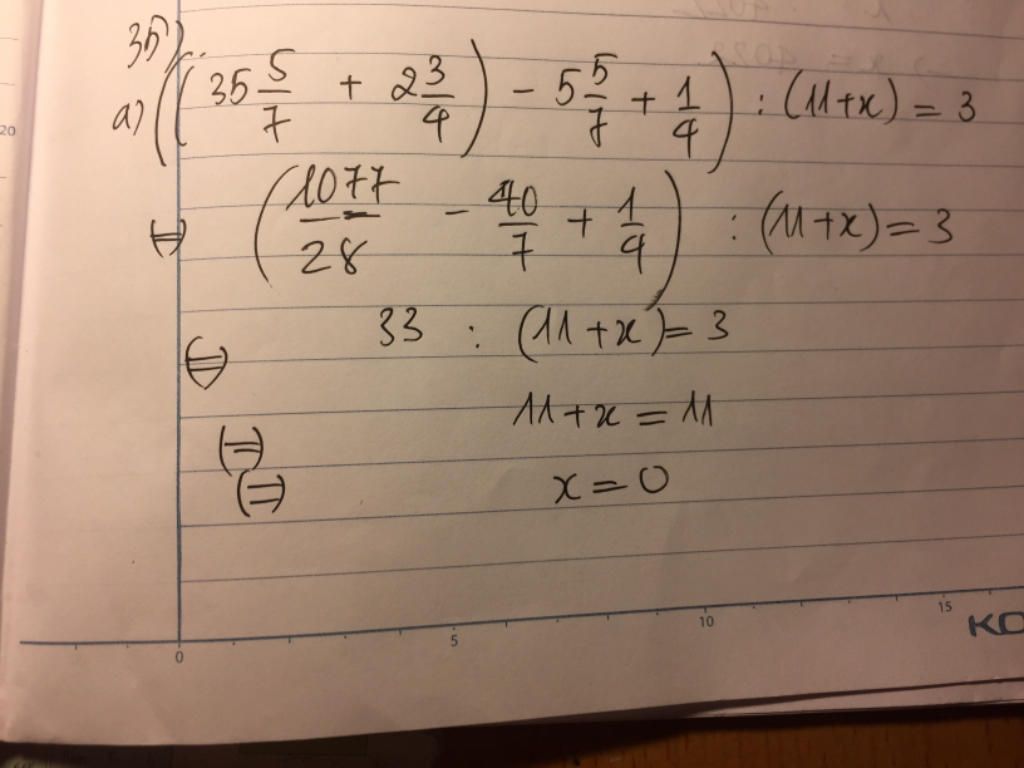 35)
a) ((35 5/7 + 2 3/4) - 5 5/7 + 1/4) : (11+x) = 3
(=) (1077/28 - 40/7 + 1/4) : (11+x) = 3
(=) 33 : (11+x) = 3
(=) 11+x = 11
(=) x = 0
20
0 5 10 15